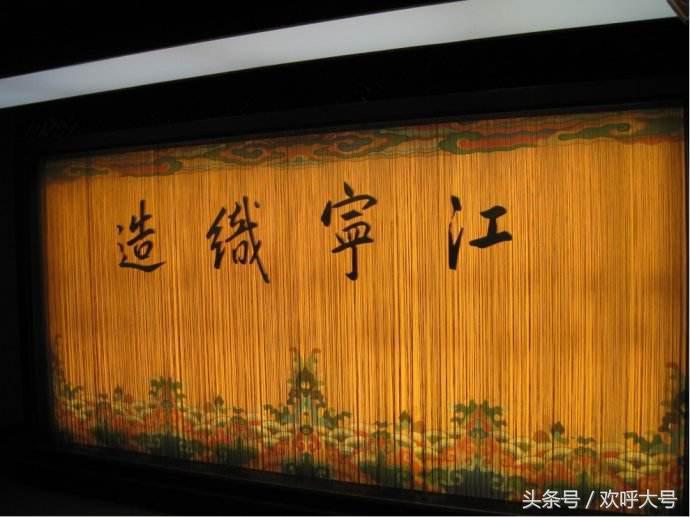 江寧織造
头条号／欢呼大号